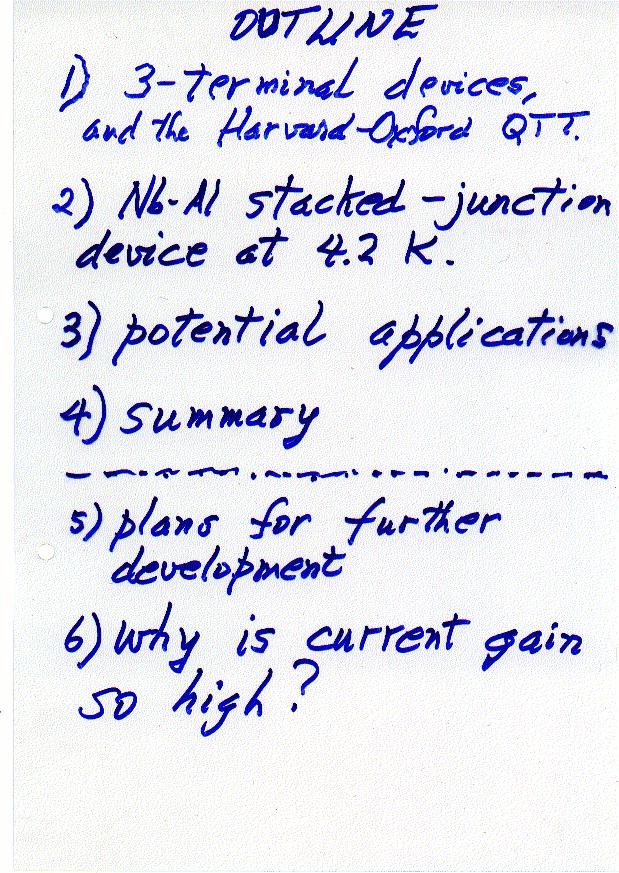 OUTLINE
1) 3-terminal devices,
and the Harvard-Oxford QTT.
2) Nb-Al stacked-junction
device at 4.2 K.
3) potential applications
4) summary
5) plans for further
development
6) Why is current gain
so high?